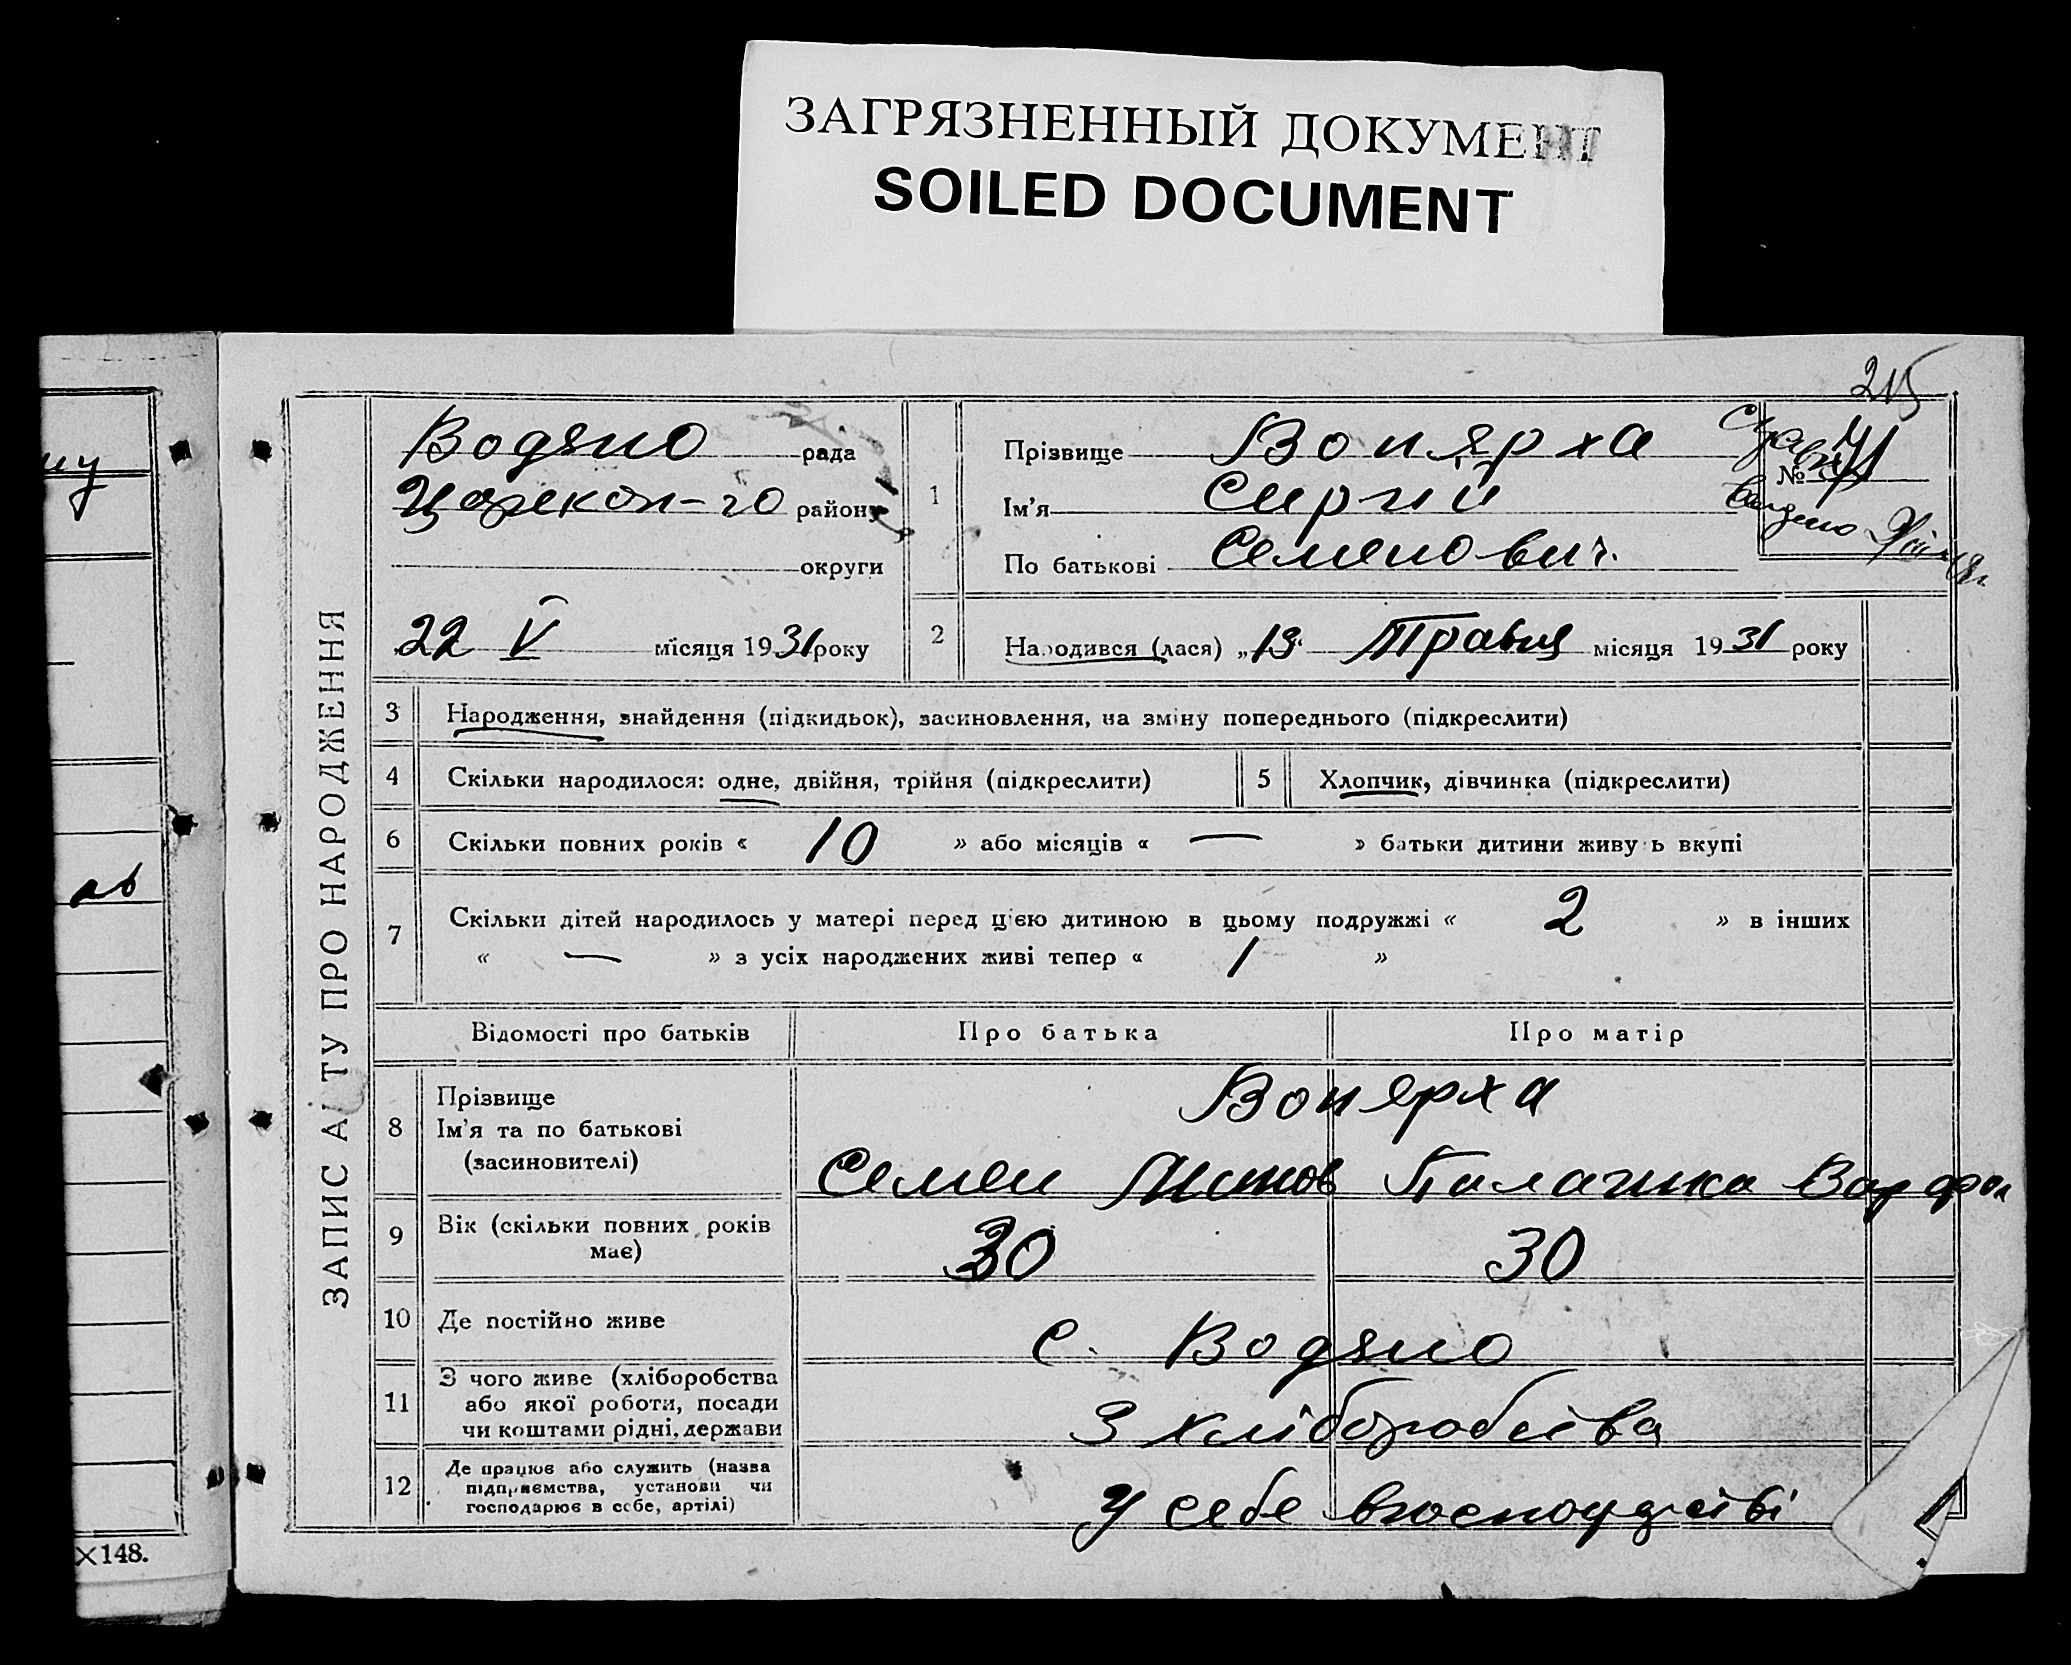 ЗАГРЯЗНЕННЫЙ ДОКУМЕНТ
SOILED DOCUMENT
215
ЗАПИС АКТУ ПРО НАРОДЖЕННЯ
Водяно рада
Царекон-го району
округи
22 V місяця 1931 року
1
Прізвище Вонярха
Ім'я Сиргій
По батькові Семенович.
№ 41
2 Народився (лася) „13“ Травня місяця 1931 року
3 Народження, знайдення (підкидьок), засиновлення, на зміну попереднього (підкреслити)
4 Скільки народилося: одне, двійня, трійня (підкреслити) 5 Хлопчик, дівчинка (підкреслити)
6 Скільки повних років « 10 » або місяців « — » батьки дитини живуть вкупі
7 Скільки дітей народилось у матері перед цією дитиною в цьому подружжі « 2 » в інших
« — » з усіх народжених живі тепер « 1 »
Відомості про батьків Про батька Про матір
8 Прізвище
Ім'я та по батькові
(засиновителі)
Вонярха
Семен Пилагика Варфол
9 Вік (скільки повних років
має)
30 30
10 Де постійно живе с. Водяно
11 З чого живе (хліборобства
або якої роботи, посади
чи коштами рідні, держави
З хліборобства
12 Де працює або служить (назва
підприємства, установи чи
господарює в себе, артілі)
У себе
му
ав
×148.